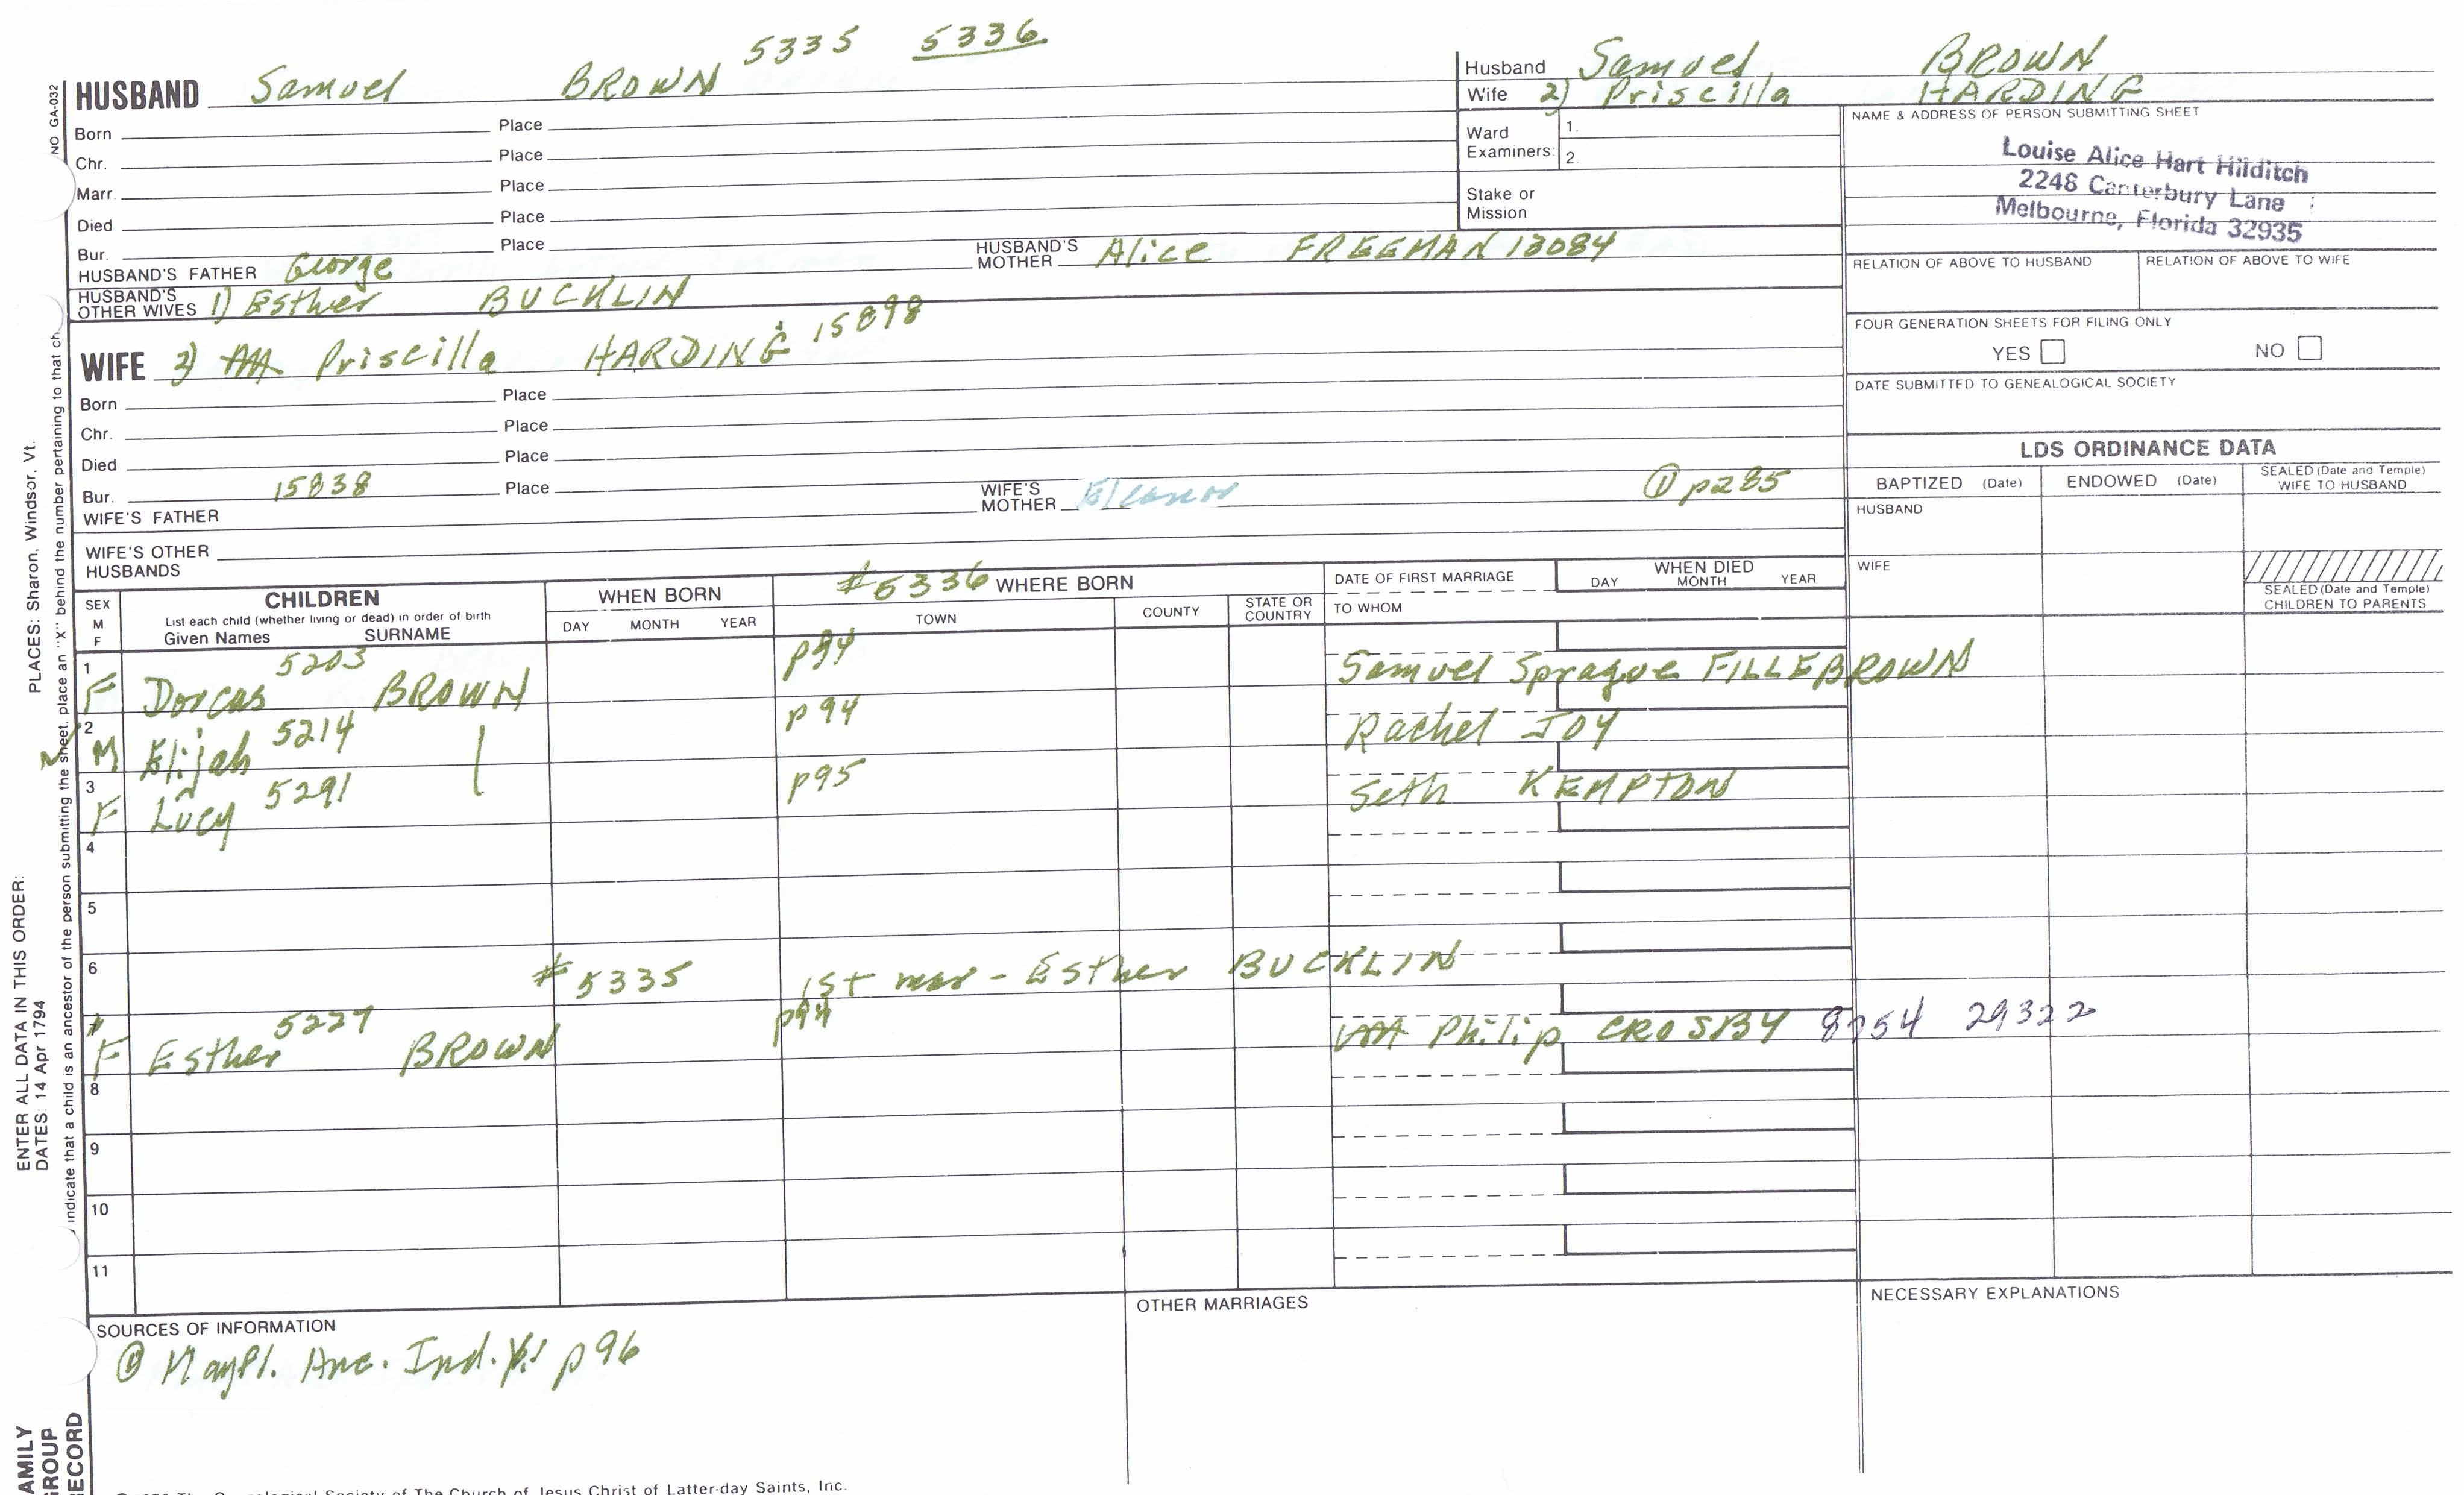 5335 5336
HUSBAND Samuel BROWN
Husband Samuel BROWN
Wife 2) Priscilla HARDING
Born Place
Chr. Place
Marr. Place
Died Place
Bur. Place
Ward Examiners: 1. 2.
Stake or Mission
NAME & ADDRESS OF PERSON SUBMITTING SHEET
Louise Alice Hart Hilditch
2248 Canterbury Lane
Melbourne, Florida 32935
HUSBAND'S FATHER George HUSBAND'S MOTHER Alice FREEMAN 13084
HUSBAND'S OTHER WIVES 1) Esther BUCKLIN
RELATION OF ABOVE TO HUSBAND RELATION OF ABOVE TO WIFE
FOUR GENERATION SHEETS FOR FILING ONLY
YES NO
DATE SUBMITTED TO GENEALOGICAL SOCIETY
WIFE 2) Priscilla HARDING 15898
Born Place
Chr. Place
Died Place
Bur. Place
WIFE'S FATHER 15838 WIFE'S MOTHER Eleanor ① p285
WIFE'S OTHER HUSBANDS
LDS ORDINANCE DATA
BAPTIZED (Date) ENDOWED (Date) SEALED (Date and Temple) WIFE TO HUSBAND
HUSBAND
WIFE
SEALED (Date and Temple) CHILDREN TO PARENTS
SEX M F
CHILDREN
List each child (whether living or dead) in order of birth
Given Names SURNAME
WHEN BORN
DAY MONTH YEAR
#5336 WHERE BORN
TOWN COUNTY STATE OR COUNTRY
DATE OF FIRST MARRIAGE
TO WHOM
WHEN DIED
DAY MONTH YEAR
1 F Dorcas 5203 BROWN p94 Samuel Sprague FILLEBROWN
2 M Elijah 5214 | p94 Rachel JOY
3 F Lucy 5291 p95 Seth KEMPTON
4
5
6 #5335 1st mar - Esther BUCKLIN
F Esther 5227 BROWN p94 Philip CROSBY 8754 29322
8
9
10
11
SOURCES OF INFORMATION
① Mayfl. Anc. Ind. p96
OTHER MARRIAGES
NECESSARY EXPLANATIONS
NO GA-032
PLACES: Sharon, Windsor, Vt.
ENTER ALL DATA IN THIS ORDER:
DATES: 14 Apr 1794
indicate that a child is an ancestor of the person submitting the sheet, place an "X" behind the number pertaining to that ch
AMILY
GROUP
RECORD
Society of The Church of Jesus Christ of Latter-day Saints, Inc.